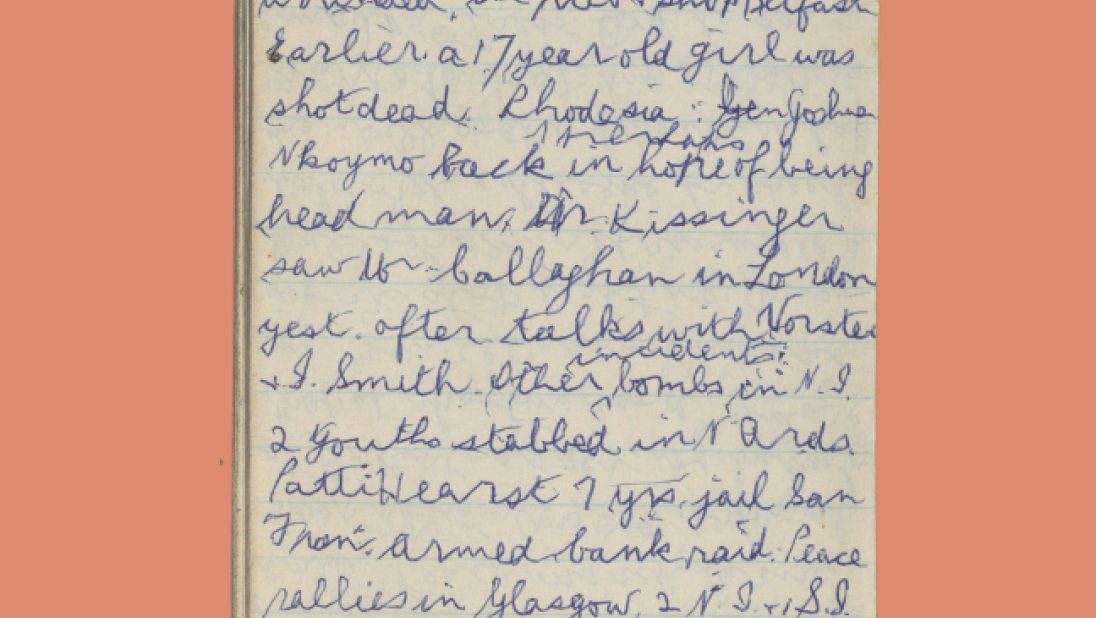 wounded, in shop Belfast
Earlier a 17 year old girl was
shot dead. Rhodesia : Gen Joshua
Nkoymo back in hope of being
head man. Dr. Kissinger
saw Mr Callaghan in London
yest. after talks with Vorster
+ I. Smith. Other bombs in N.I.
incidents:
2 youths stabbed in N Ards.
Patti Hearst 7 yrs. jail San
Fran. armed bank raid. Peace
rallies in Glasgow, 2 N.I. + S.I.